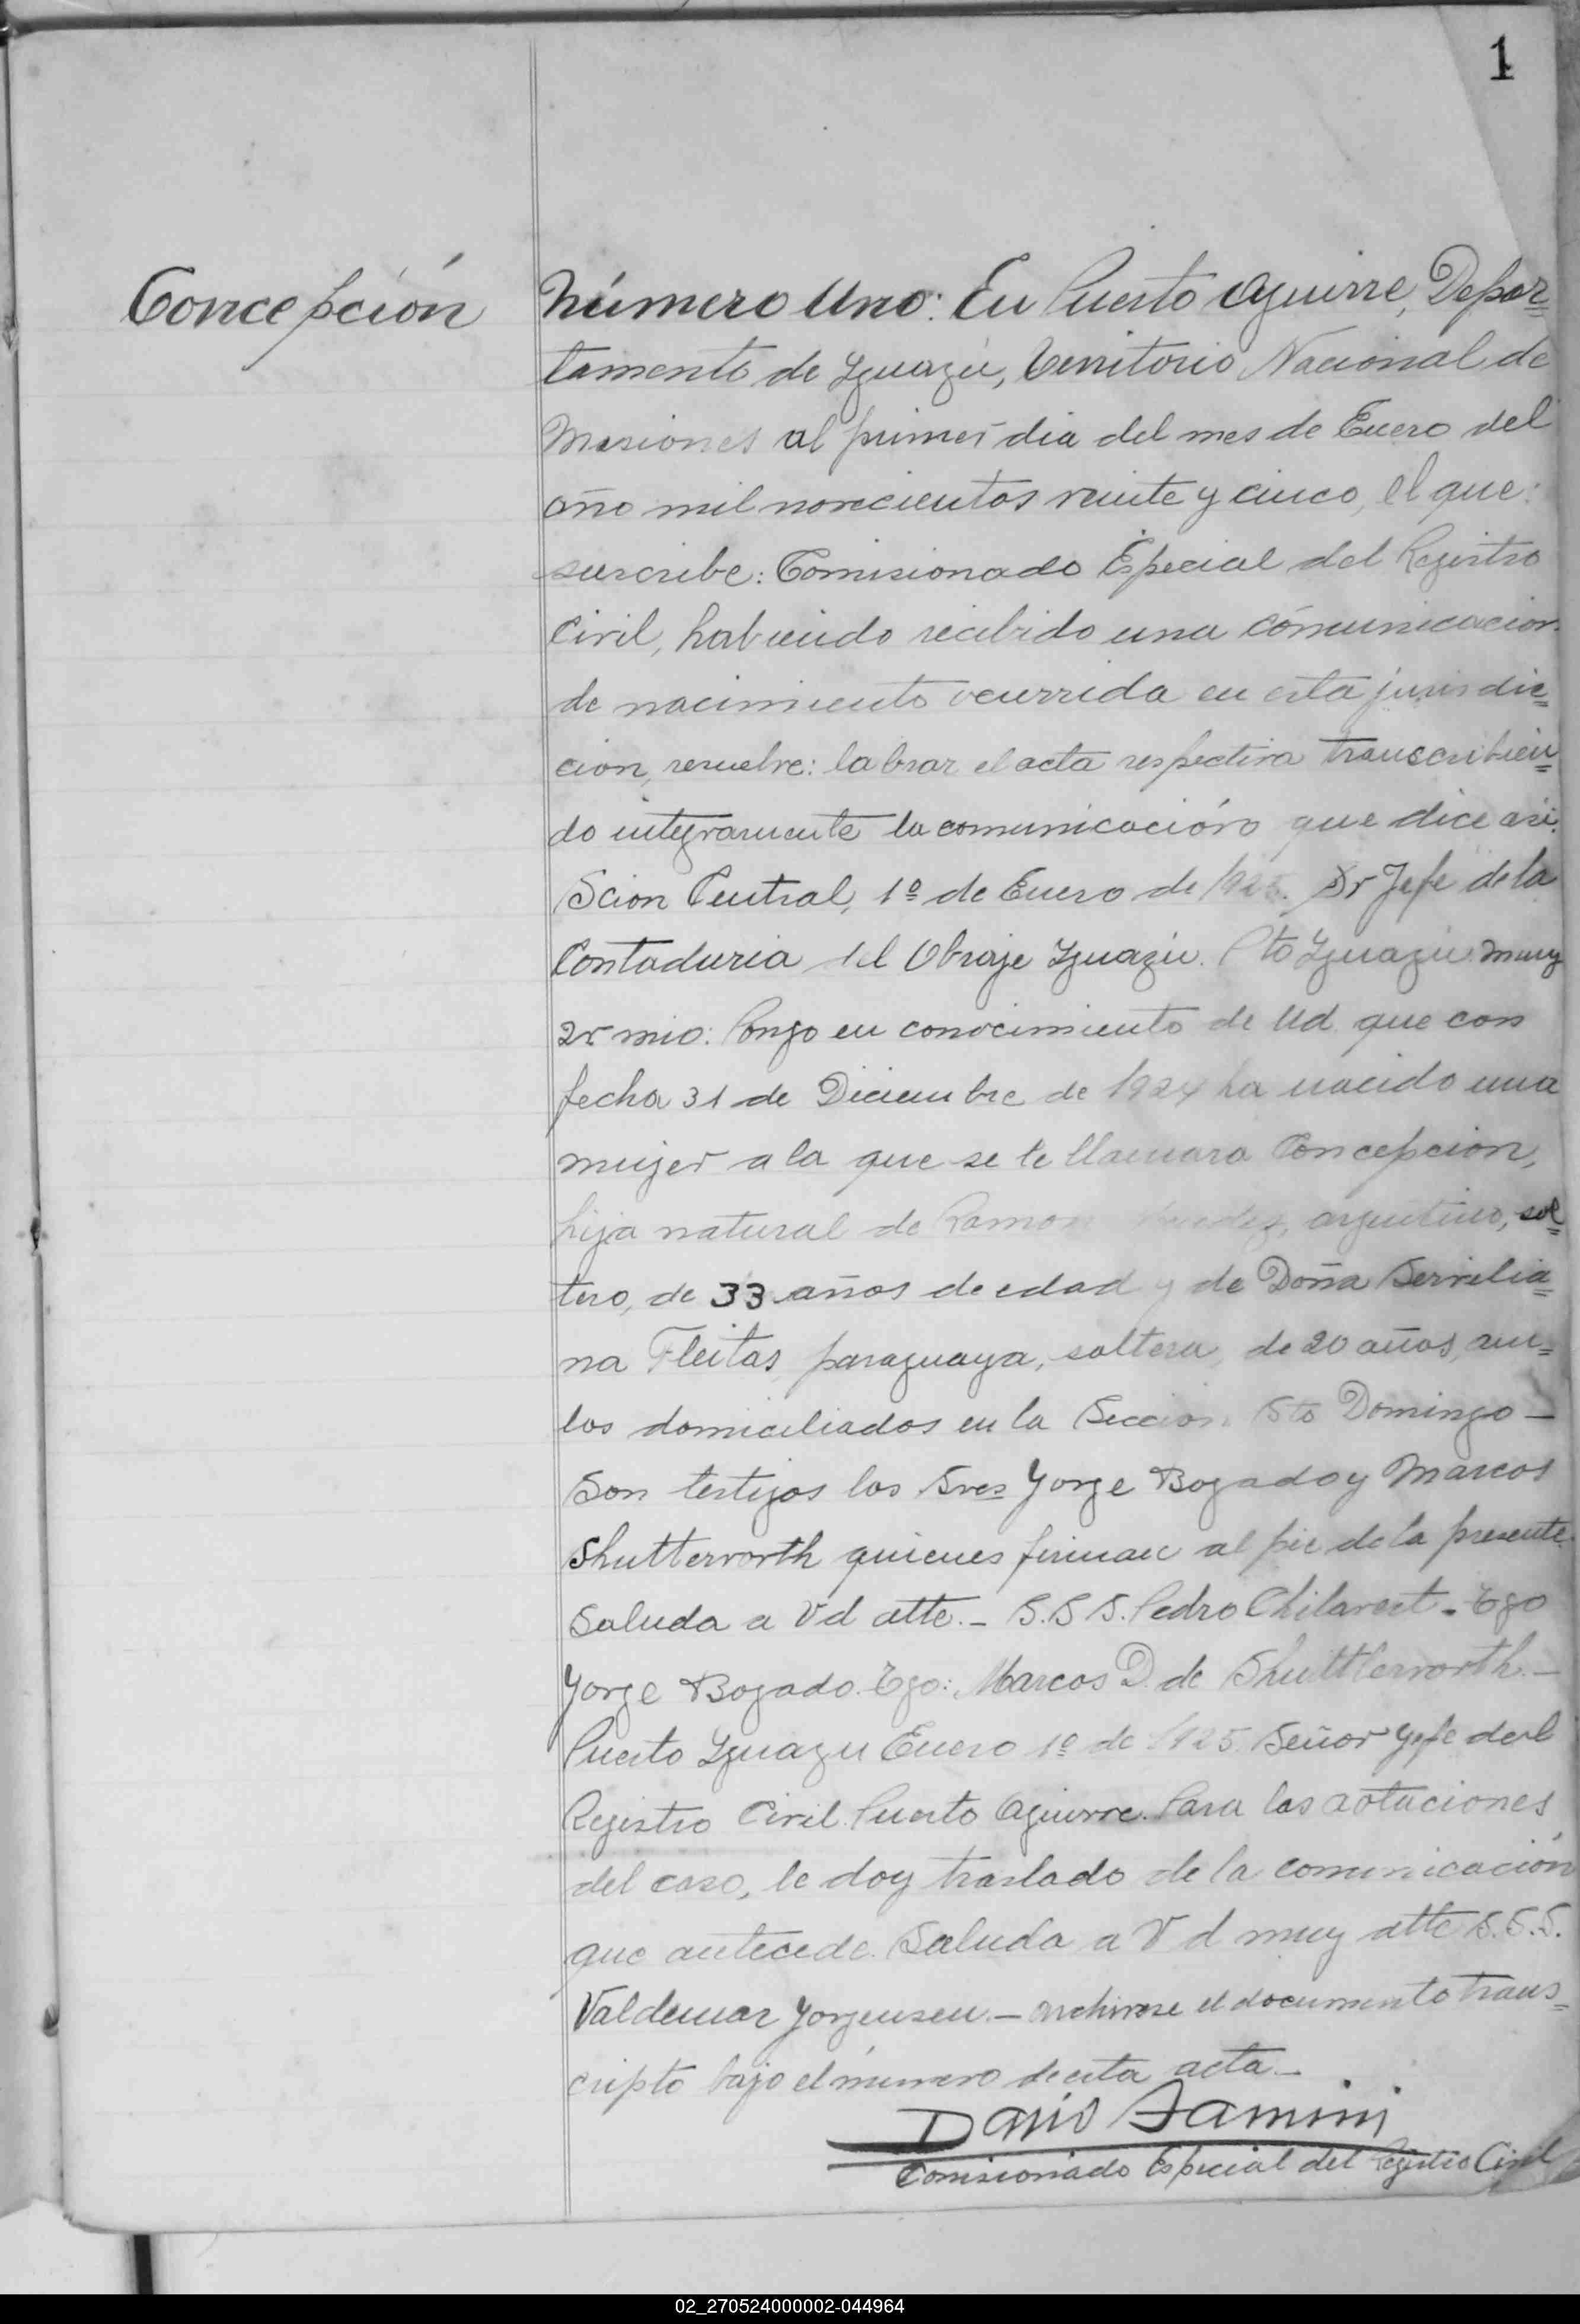 1
Concepción
Número Uno: En Puerto Aguirre, Depar=
tamento de Yguazú, Territorio Nacional de
Misiones al primer dia del mes de Enero del
año mil novecientos veinte y cinco, el que:
suscribe: Comisionado Especial del Registro
Civil, habiendo recibido una cómunicacion
de nacimiento ocurrida en esta jurisdic=
cion, resuelve: labrar el acta respectiva transcribien=
do integramente la comunicación que dice asi:
Scion Central, 1º de Enero de 1925. Sr Jefe de la
Contaduria del Obraje Yguazú. Pto Yguazú. muy
Sr mio: Pongo en conocimiento de Ud. que con
fecha 31 de Diciembre de 1924 ha nacido una
mujer a la que se le llamara Concepcion,
hija natural de Ramon argentino, sol=
tero, de 33 años de edad y de Doña Servilia=
na Fleitas, paraguaya, soltera, de 20 años, am=
bos domiciliados en la Seccion Sto Domingo _
Son testigos los Sres Yorge Bogado y Marcos
Shutterworth quienes firman al pie de la presente.
Saluda a Vd atte. _ S.S.S. Pedro Chilavert - Tgo
Yorge Bogado. Tgo: Marcos D. de Shuttlerworth. _
Puerto Yguazu Enero 1º de 1925. Señor Yefe del
Registro Civil. Puerto Aguirre. Para las aotaciones
del caso, le doy traslado de la comunicación
que antecede. Saluda a Vd muy atte S.S.S.
Valdemar Yorgensen. _ archivese el documento trans=
cripto bajo el número de esta acta _
Dario
Comisionado Especial del Registro Civil
02_270524000002-044964